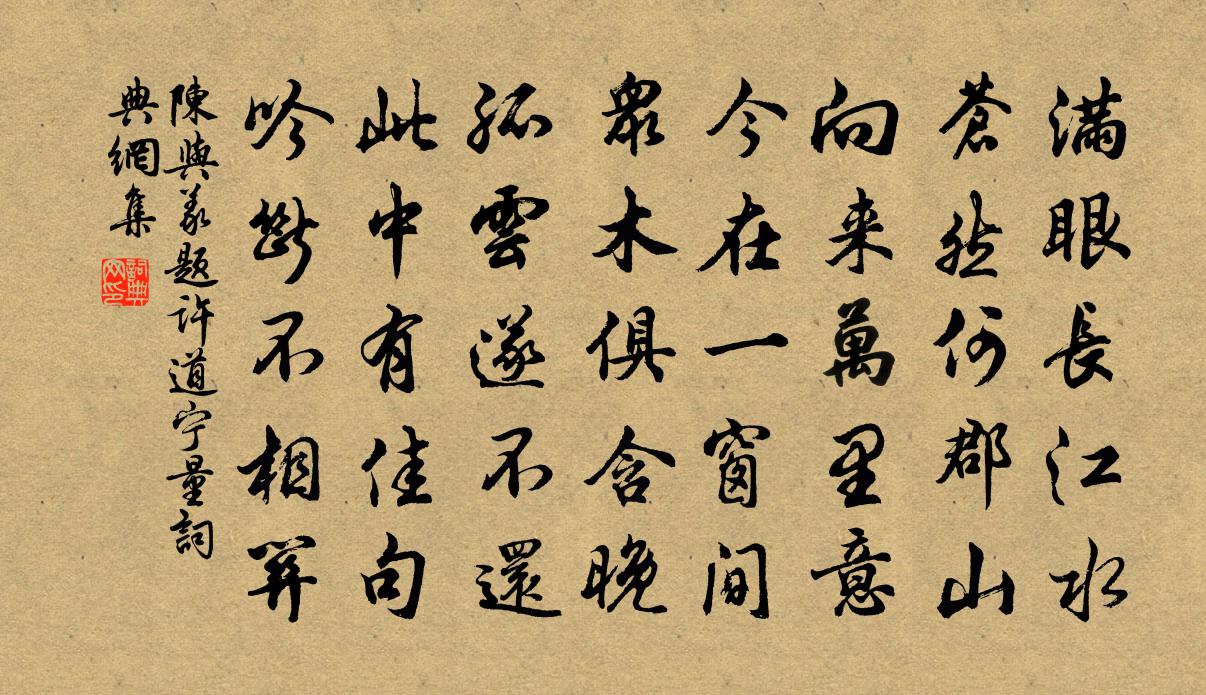 滿眼長江水
蒼然何郡山
向来萬里意
今在一窗間
眾木俱含晚
孤雲遂不還
此中有佳句
吟斷不相關
陳與義題许道宁量詞
典網集
詞典
网印